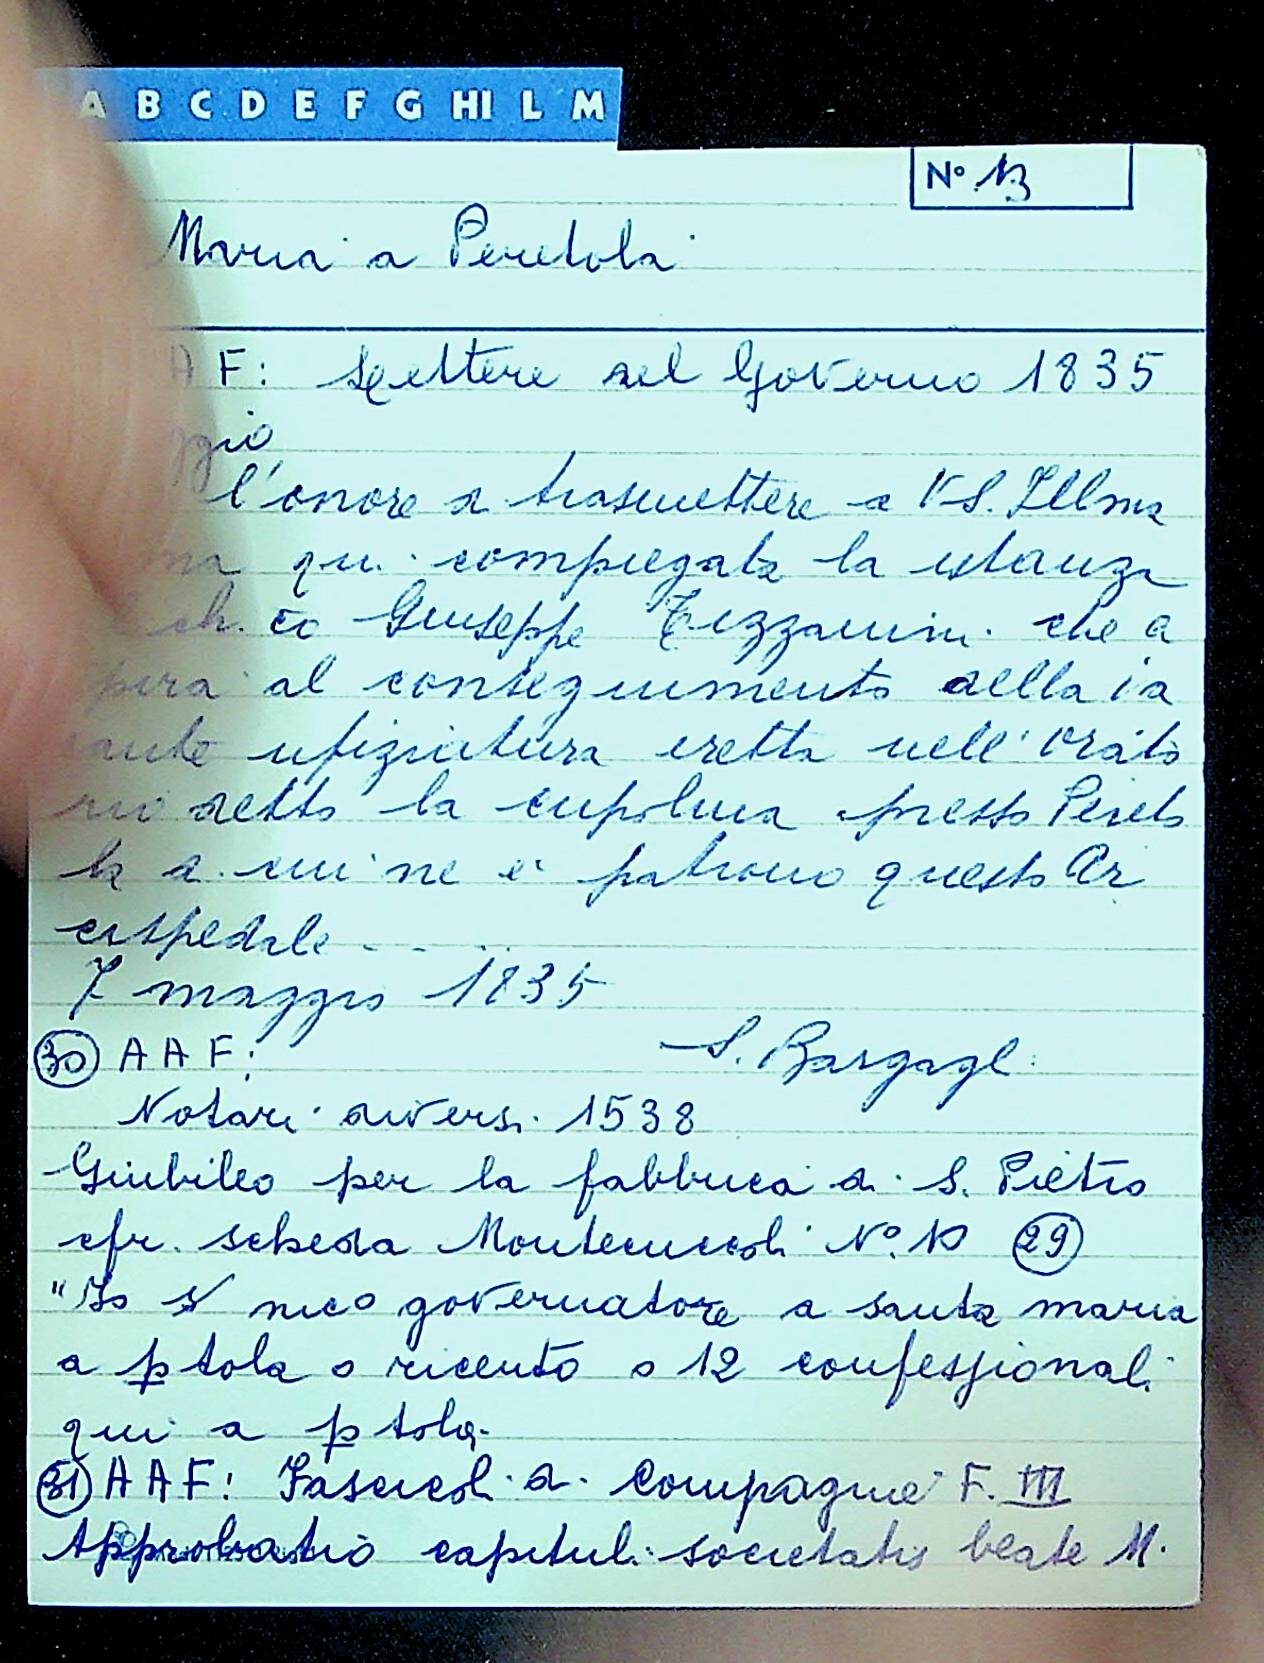 A B C D E F G HI L M
N° 13
Maria a Peretola
A F: Lettere del Governo 1835
ggio
l'onore di trasmettere a VS. Illma
ma qui compiegata la istanza
ch. co Giuseppe Tizzanini che a
pira al conseguimento della va
cante ufiziatura eretta nell'orato
rio detto la cupolina presso Pereto
la di cui ne è patrono questo Ar
cispedale - - ..
7 maggio 1835
30 A A F: S. Bargagli
Notari diversi 1538
Giubileo per la fabbrica di S. Pietro
cfr. scheda Montecuccoli N° 10 29
"Io s nico governatore a santa maria
a ptola o riceuto o 12 confessionali
qui a ptola.
31 A A F: Fascicoli di Compagnie F. III
Approbatio capitul. societatis beate M.